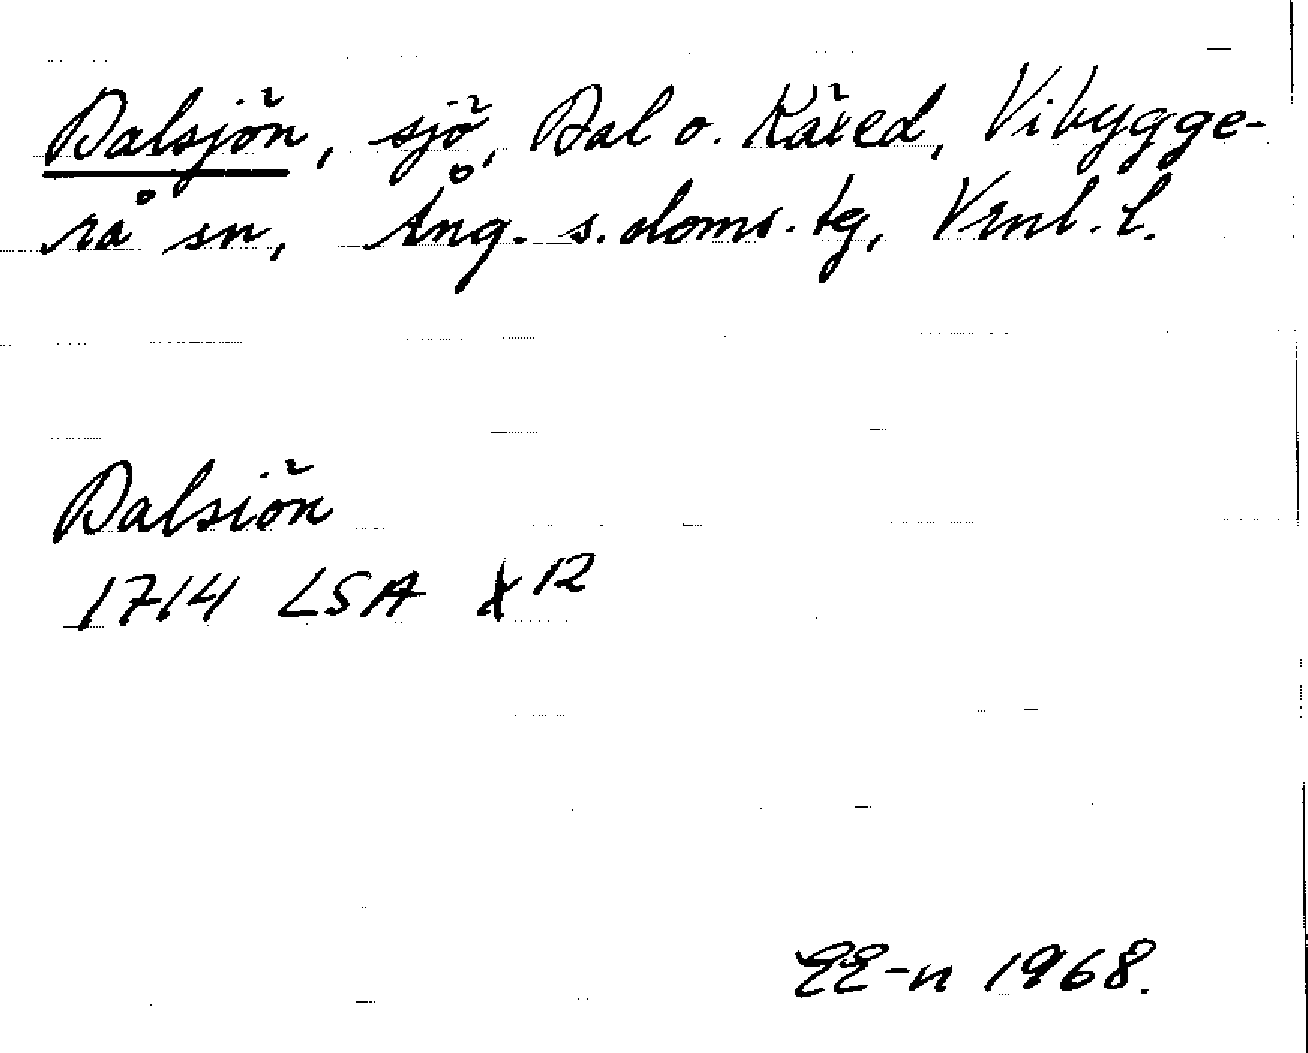 Dalsjön, sjö, Dal o. Käxed, Vibygge-
rå sn, Ång. s. doms. tg, Vrnl. l.
Dalsiön
1714 LSA X 12
EE-n 1968.